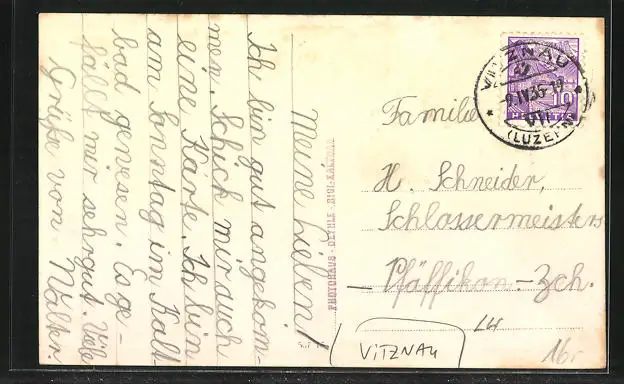 Meine Lieben!
Ich bin gut angekom-
men. Schick mir auch
eine Karte. Ich bin
am Sonntag im Kalt-
bad gewesen. Es ge-
fällt mir sehr gut. Viele
Grüße von Walter.
PHOTOHAUS RIGI-KALTBAD
VITZNAU
(LUZERN)
10
HELVETIA
Familie
H. Schneider,
Schlossermeisters
Pfäffikon-Zch.
LU
VITZNAU
16.-